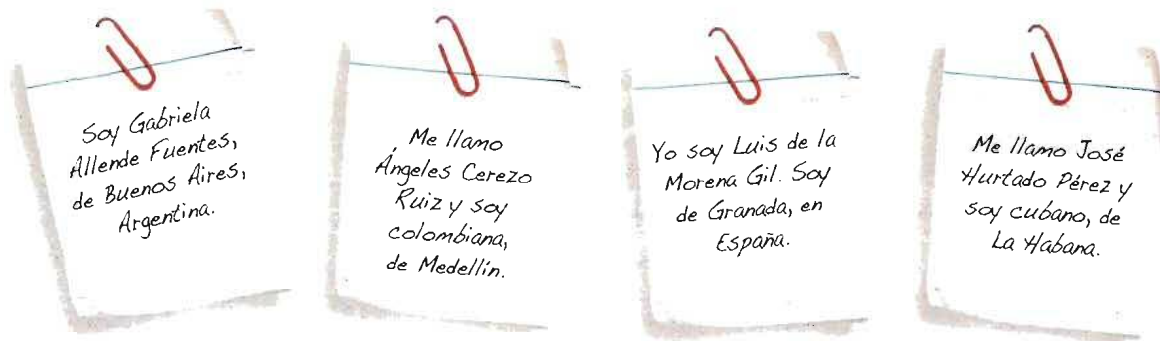 Soy Gabriela
Allende Fuentes,
de Buenos Aires,
Argentina.
Me llamo
Ángeles Cerezo
Ruiz y soy
colombiana,
de Medellín.
Yo soy Luis de la
Morena Gil. Soy
de Granada, en
España.
Me llamo José
Hurtado Pérez y
soy cubano, de
La Habana.